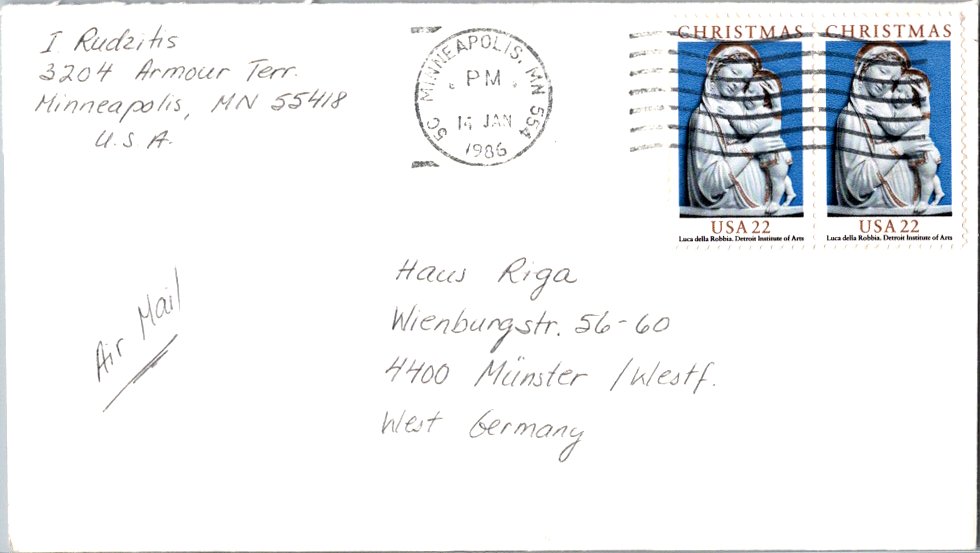 I Rudzitis
3204 Armour Terr.
Minneapolis, MN 55418
U.S A.
MINNEAPOLIS, MN 554
5C
PM
14 JAN
1986
CHRISTMAS
USA 22
Luca della Robbia. Detroit Institute of Arts
CHRISTMAS
USA 22
Luca della Robbia. Detroit Institute of Arts
Air Mail
Haus Riga
Wienburgstr. 56-60
4400 Münster /Westf.
West Germany